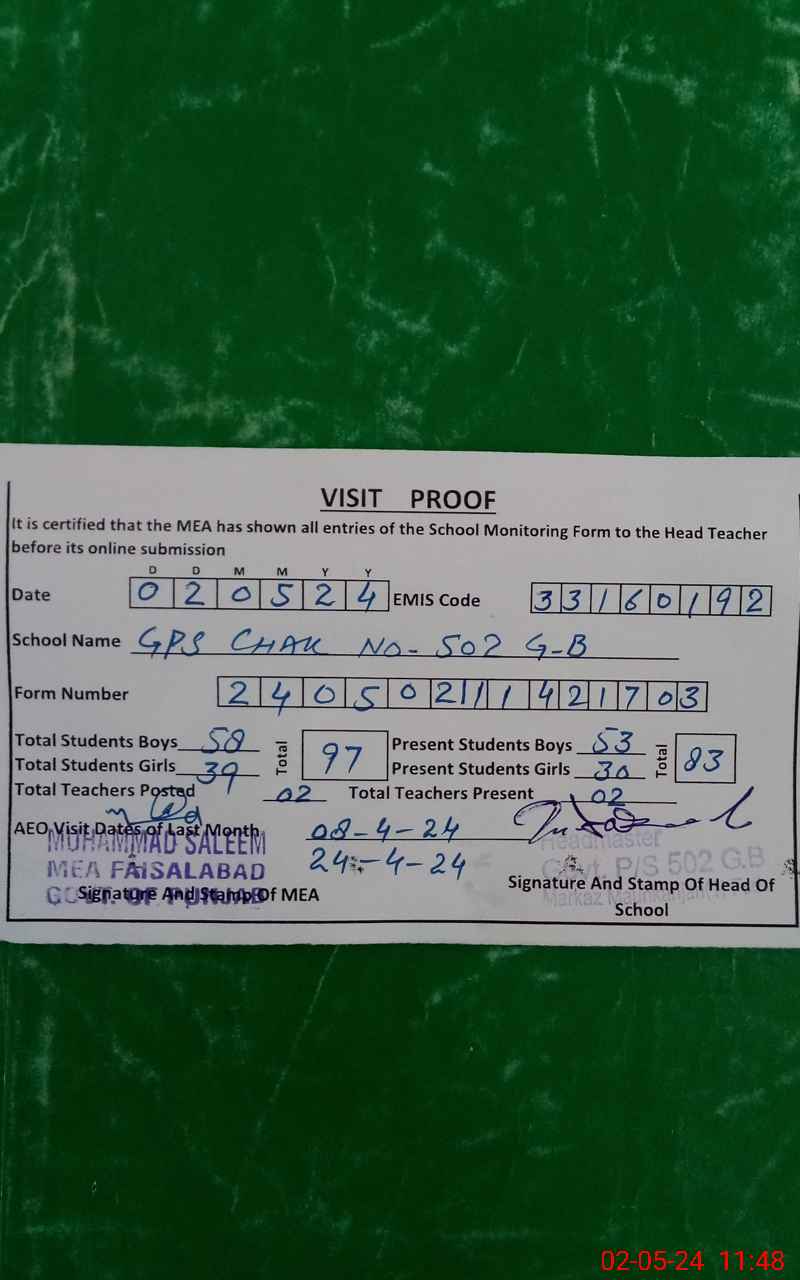 VISIT PROOF
It is certified that the MEA has shown all entries of the School Monitoring Form to the Head Teacher
before its online submission
D D M M Y Y
Date 0 2 0 5 2 4 EMIS Code 3 3 1 6 0 1 9 2
School Name GPS CHAK NO- 502 G-B
Form Number 2 4 0 5 0 2 1 1 1 4 2 1 7 0 3
Total Students Boys 58 Total 97 Present Students Boys 53 Total 83
Total Students Girls 39 Present Students Girls 30
Total Teachers Posted 02 Total Teachers Present 02
AEO Visit Dates of Last Month 08-4-24
24-4-24
MUHAMMAD SALEEM
MEA FAISALABAD
GOVT. OF PUNJAB
Signature And Stamp Of MEA
Headmaster
Govt. P/S 502 G.B
Markaz
Signature And Stamp Of Head Of
School
02-05-24 11:48